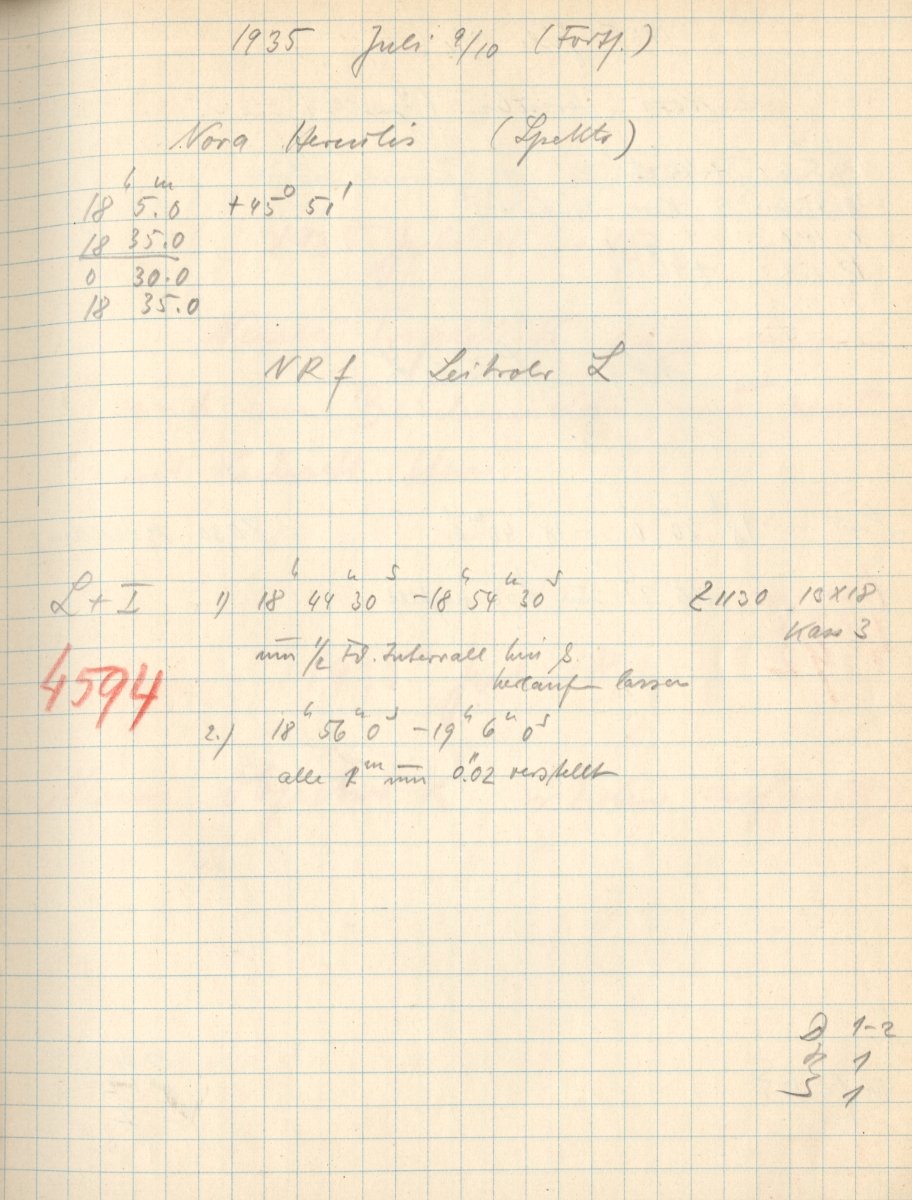 1935 Juli 9/10 (Forts.)
Nova Herculis (Spektr)
18h 5.0m +45° 51'
18 35.0
0 30.0
18 35.0
NRf Leitrohr L
L + I 1) 18h 44m 30s - 18h 54m 30s Z1130 13x18
Kass 3
um 1/2 Fd. Intervall hin &
verlaufen lassen
4594
2.) 18h 56m 0s - 19h 6m 0s
alle 1m um 0."02 verstellt
D 1-2
1
1